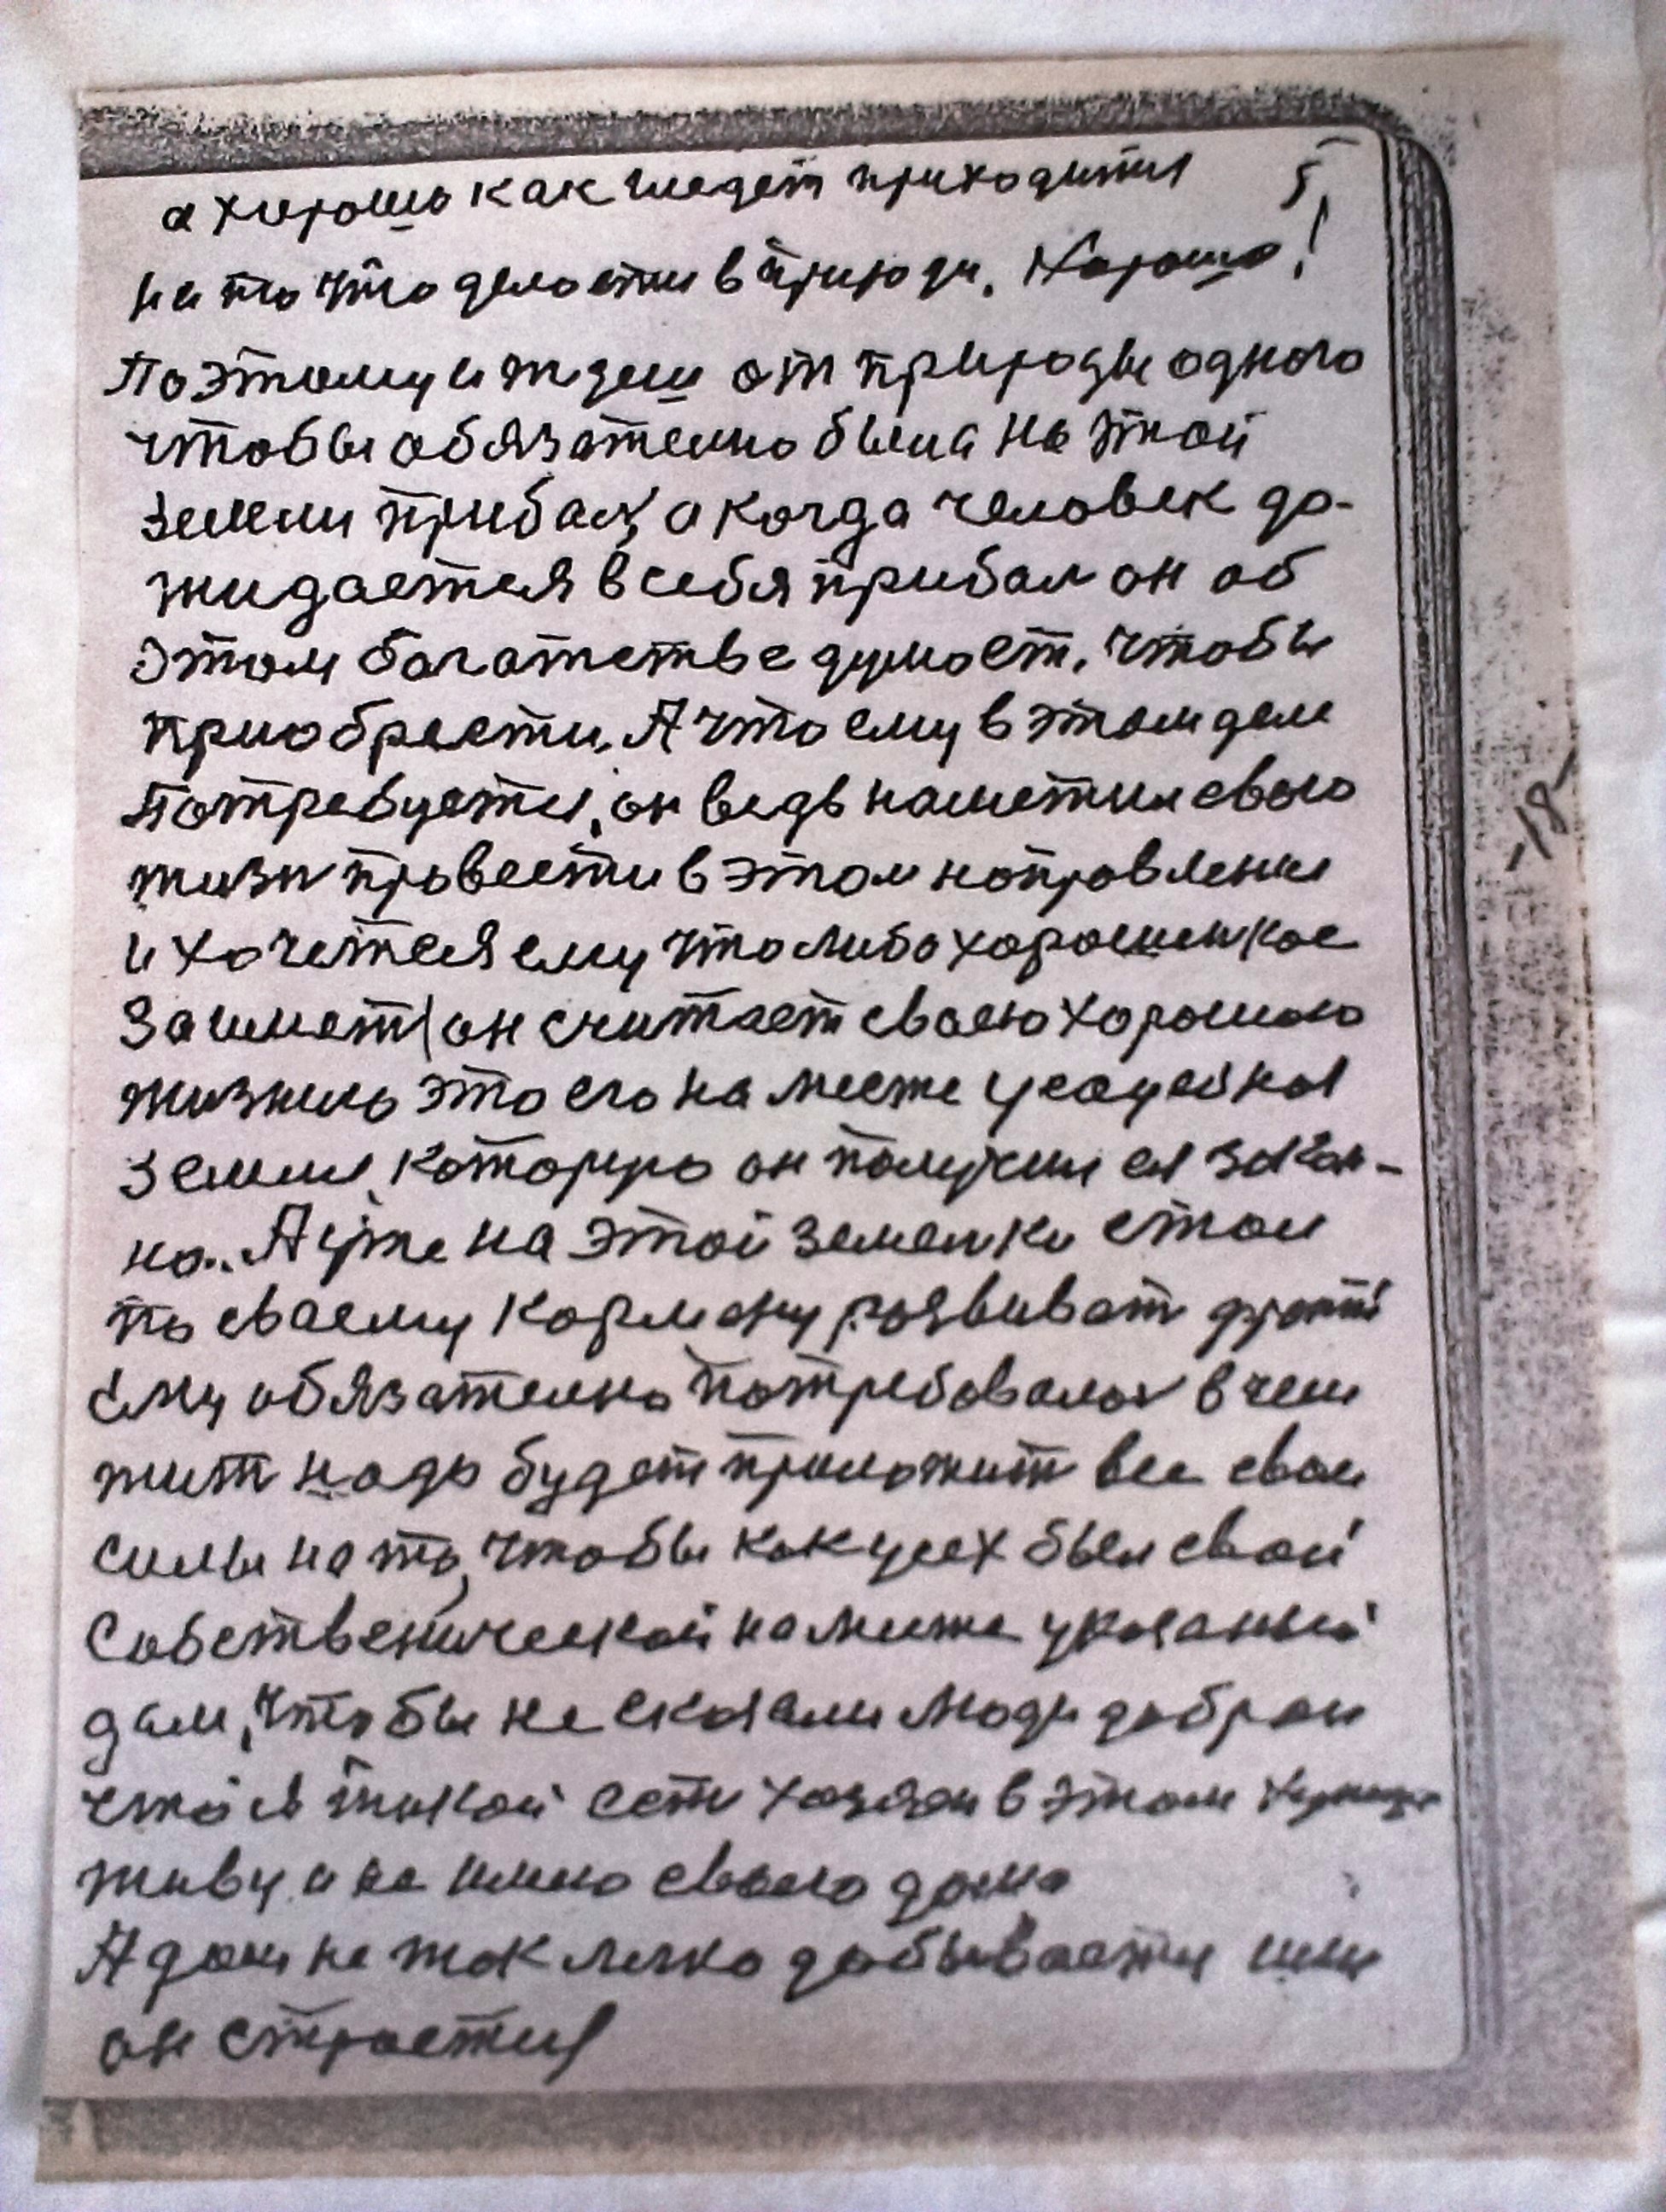 а хорошо как следет приходится 5
на то что делаетси в природи, Хорошо!
Поэтому и ждеш от природы одного
чтобы обязателно была на этой
земли прибал, а когда человек до-
жидается в себя прибал он об
этом богатстве думает, чтобы
приобрести. А что ему в этом деле
потребуется, он ведь наметил свою
жизн провести в этом направлении
и хочется ему что либо хорошенкое
он считает своею хорошою
жизнию это его на месте усадебная
земля, которую он получил закон-
но.. А уже на этой земелки стал
по своему карману развиват
Ему обязателно потребовалос в чем
жит надо будет приложит все свои
силы на то, чтобы как у всех был свой
Собственический на месте указаный
дом, чтобы не сказали люди доброи
что я такой ест хозяен в этом
живу а не имею своего дома
А дом не так легко добывается или
он строется
-18-